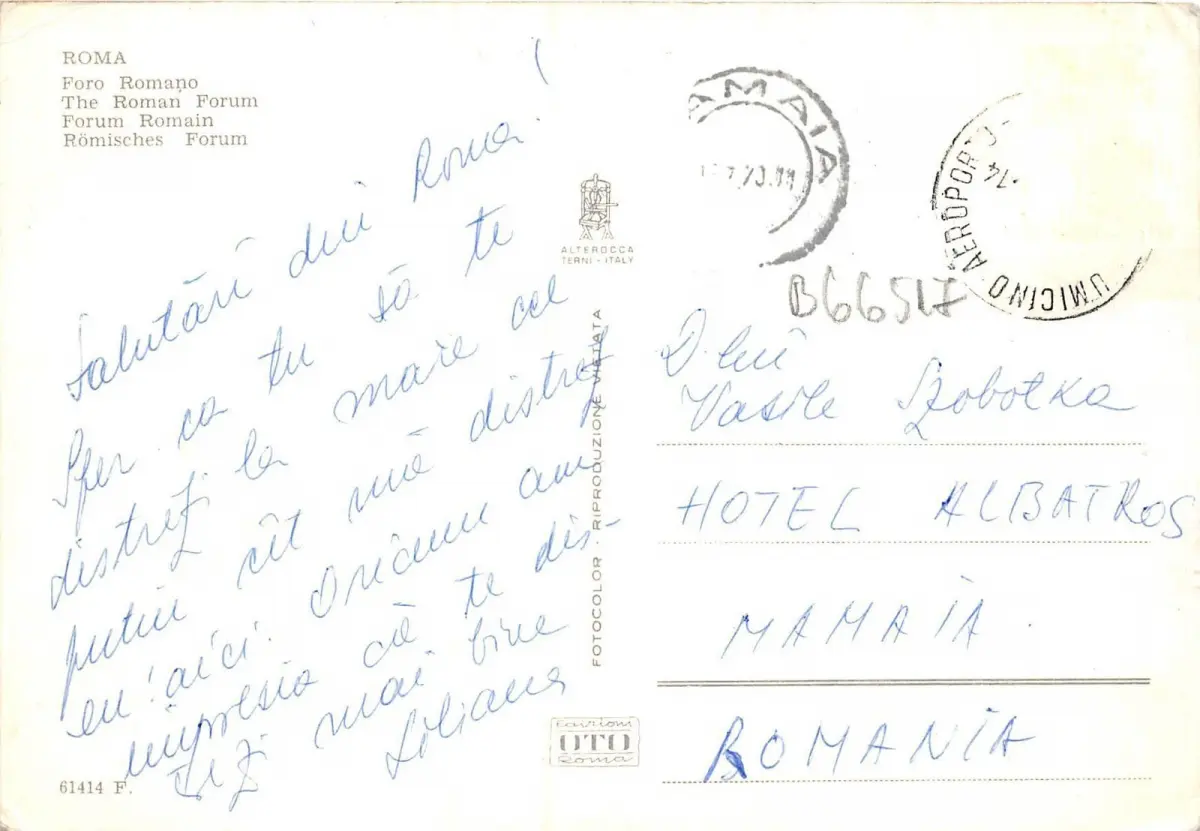 ROMA
Foro Romano
The Roman Forum
Forum Romain
Römisches Forum
Salutări din Roma!
Sper ca tu să te
distrezi la mare cel
puțin cît mă distrez
eu! aici. Oricum am
impresia că te dis-
trezi mai bine
Liliana
61414 F.
ALTEROCCA
TERNI - ITALY
FOTOCOLOR - RIPRODUZIONE VIETATA
Edizioni
OTO
Roma
AMAIA
UMICINO AEROPORTO
74
B66517
D-lui
Vasile Szobotka
HOTEL ALBATROS
MAMAIA
ROMANIA